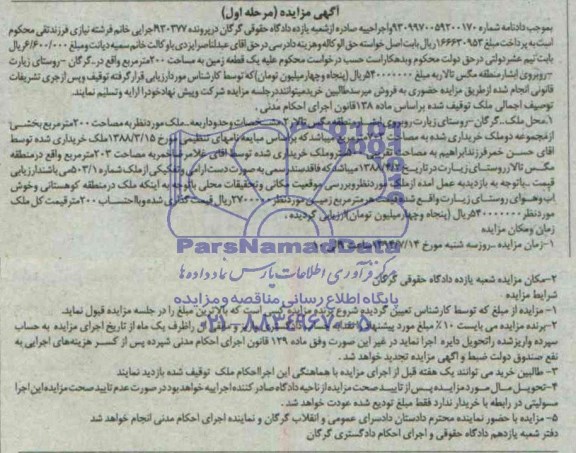 آگهی مزایده (مرحله اول)
بموجب دادنامه شماره ۹۳۰۹۹۷۰۰۵۹۳۰۰۱۷۰ واجراییه صادره ازشعبه یازده دادگاه حقوقی گرگان درپرونده ۹۳۰۳۷۷اجرایی خانم فرشته نیازی فرزندتقی محکوم
است به پرداخت مبلغ ۱۶۶۶۳۰۹۵۳ ریال بابت اصل خواسته حق الوکاله وهزینه دادرسی درحق آقای عبدالناصرایزدی باوکالت خانم سمیه دیانت ومبلغ ۶/۶۰۰/۰۰۰ریال
بابت نیم عشردولتی درحق دولت محکوم وبدهکاراست حسب درخواست محکوم علیه یک قطعه زمین به مساحت ۲۰۰مترمربع واقع در..گرگان –روستای زیارت
–روبروی ابشار منطقه مگس تالاربه مبلغ ۵۴۰۰۰۰۰۰۰ریال (پنجاه وچهارمیلیون تومان)که توسط کارشناس موردارزیابی قرارگرفته توقیف وپس ازجری تشریفات
قانونی انجام شده ازطریق مزایده حضوری به فروش میرسدطالبین خریدمیتوانند درجلسه مزایده شرکت وپیش نهادخودرا ارایه وتسلیم نمایند.
توصیف اجمالی ملک توقیف شده براساس ماده ۱۳۸قانون اجرای احکام مدنی.
۱-محل ملک..گرگان–روستای زیارت-روبروی
ازمجموعه دوملک خریداری شده به مساحت
اقای حسن خمرفرزندابراهیم به مساحت
مگس تالار روستای زیارت درتاریخ
قیمت..باتوجه به بازدیدبه عمل امده ازملک موردنظروبررسی موقعیت مکانی وتحقیقات محلی باتوجه به اینکه ملک درمنطقه کوهستانی وخوش
اب وهوای روستای زیارت واقع شده قیمت هرمترمربع زمین موردنظر ۲۷۰۰۰۰۰ریال قیمت گذاری شده وبااحتساب ۲۰۰مترقیمت کل ملک
موردنظر ۵۴۰۰۰۰۰۰۰ریال (پنجاه وچهارمیلیون تومان)ارزیابی گردیده.
زمان ومکان مزایده
۱-زمان مزایده ..روزسه شنبه مورخ ۱۳۹۴/۷/۱۴ساعت ۹الی ۱۰
۲-مکان مزایده شعبه یازده دادگاه حقوقی گرگان
شرایط مزایده.
۱- مزایده از مبلغ که توسط کارشناس تعیین گردیده شروع برنده مزایده کسی است که بالاترین مبلغ را در جلسه مزایده قبول نماید.
۲-برنده مزایده می بایست ۱۰٪ مبلغ مورد پیشنهاد را ظرف یک ماه از تاریخ اجرای مزایده به حساب
سپرده واریزشده راتحویل دایره اجرا نماید در غیر این صورت وفق ماده ۱۲۹ قانون اجرای احکام مدنی شپرده پس از کسر هزینه‌های اجرایی به
نفع صندوق دولت ضبط و آگهی مزایده تجدید خواهد شد.
۳- طالبین خرید می توانند یک هفته قبل از اجرای مزایده با هماهنگی این اجرااحکام ملک توقیف شده بازدید نمایند
۴-تحویل مال مورد مزایده پس از تایید صحت مزایده از ناحیه دادگاه صادر کننده اجراییه خواهد بود در صورت عدم تایید صحت مزایده این اجرا
مسولیتی در رابطه با خریدار ندارد فقط مبلغ تودیع شده عودت خواهد شد.
۵- مزایده با حضور نماینده محترم دادستان دادسرای عمومی و انقلاب گرگان و نماینده اجرای احکام مدنی انجام خواهد شد
دفتر شعبه یازدهم دادگاه حقوقی و اجرای احکام دادگستری گرگان
ParsNamadData
مرکز فرآوری اطلاعات پارس نماد داده ها
پایگاه اطلاع رسانی مناقصه و مزایده
۰۲۱-۸۸۳۴۹۶۷۰-۵